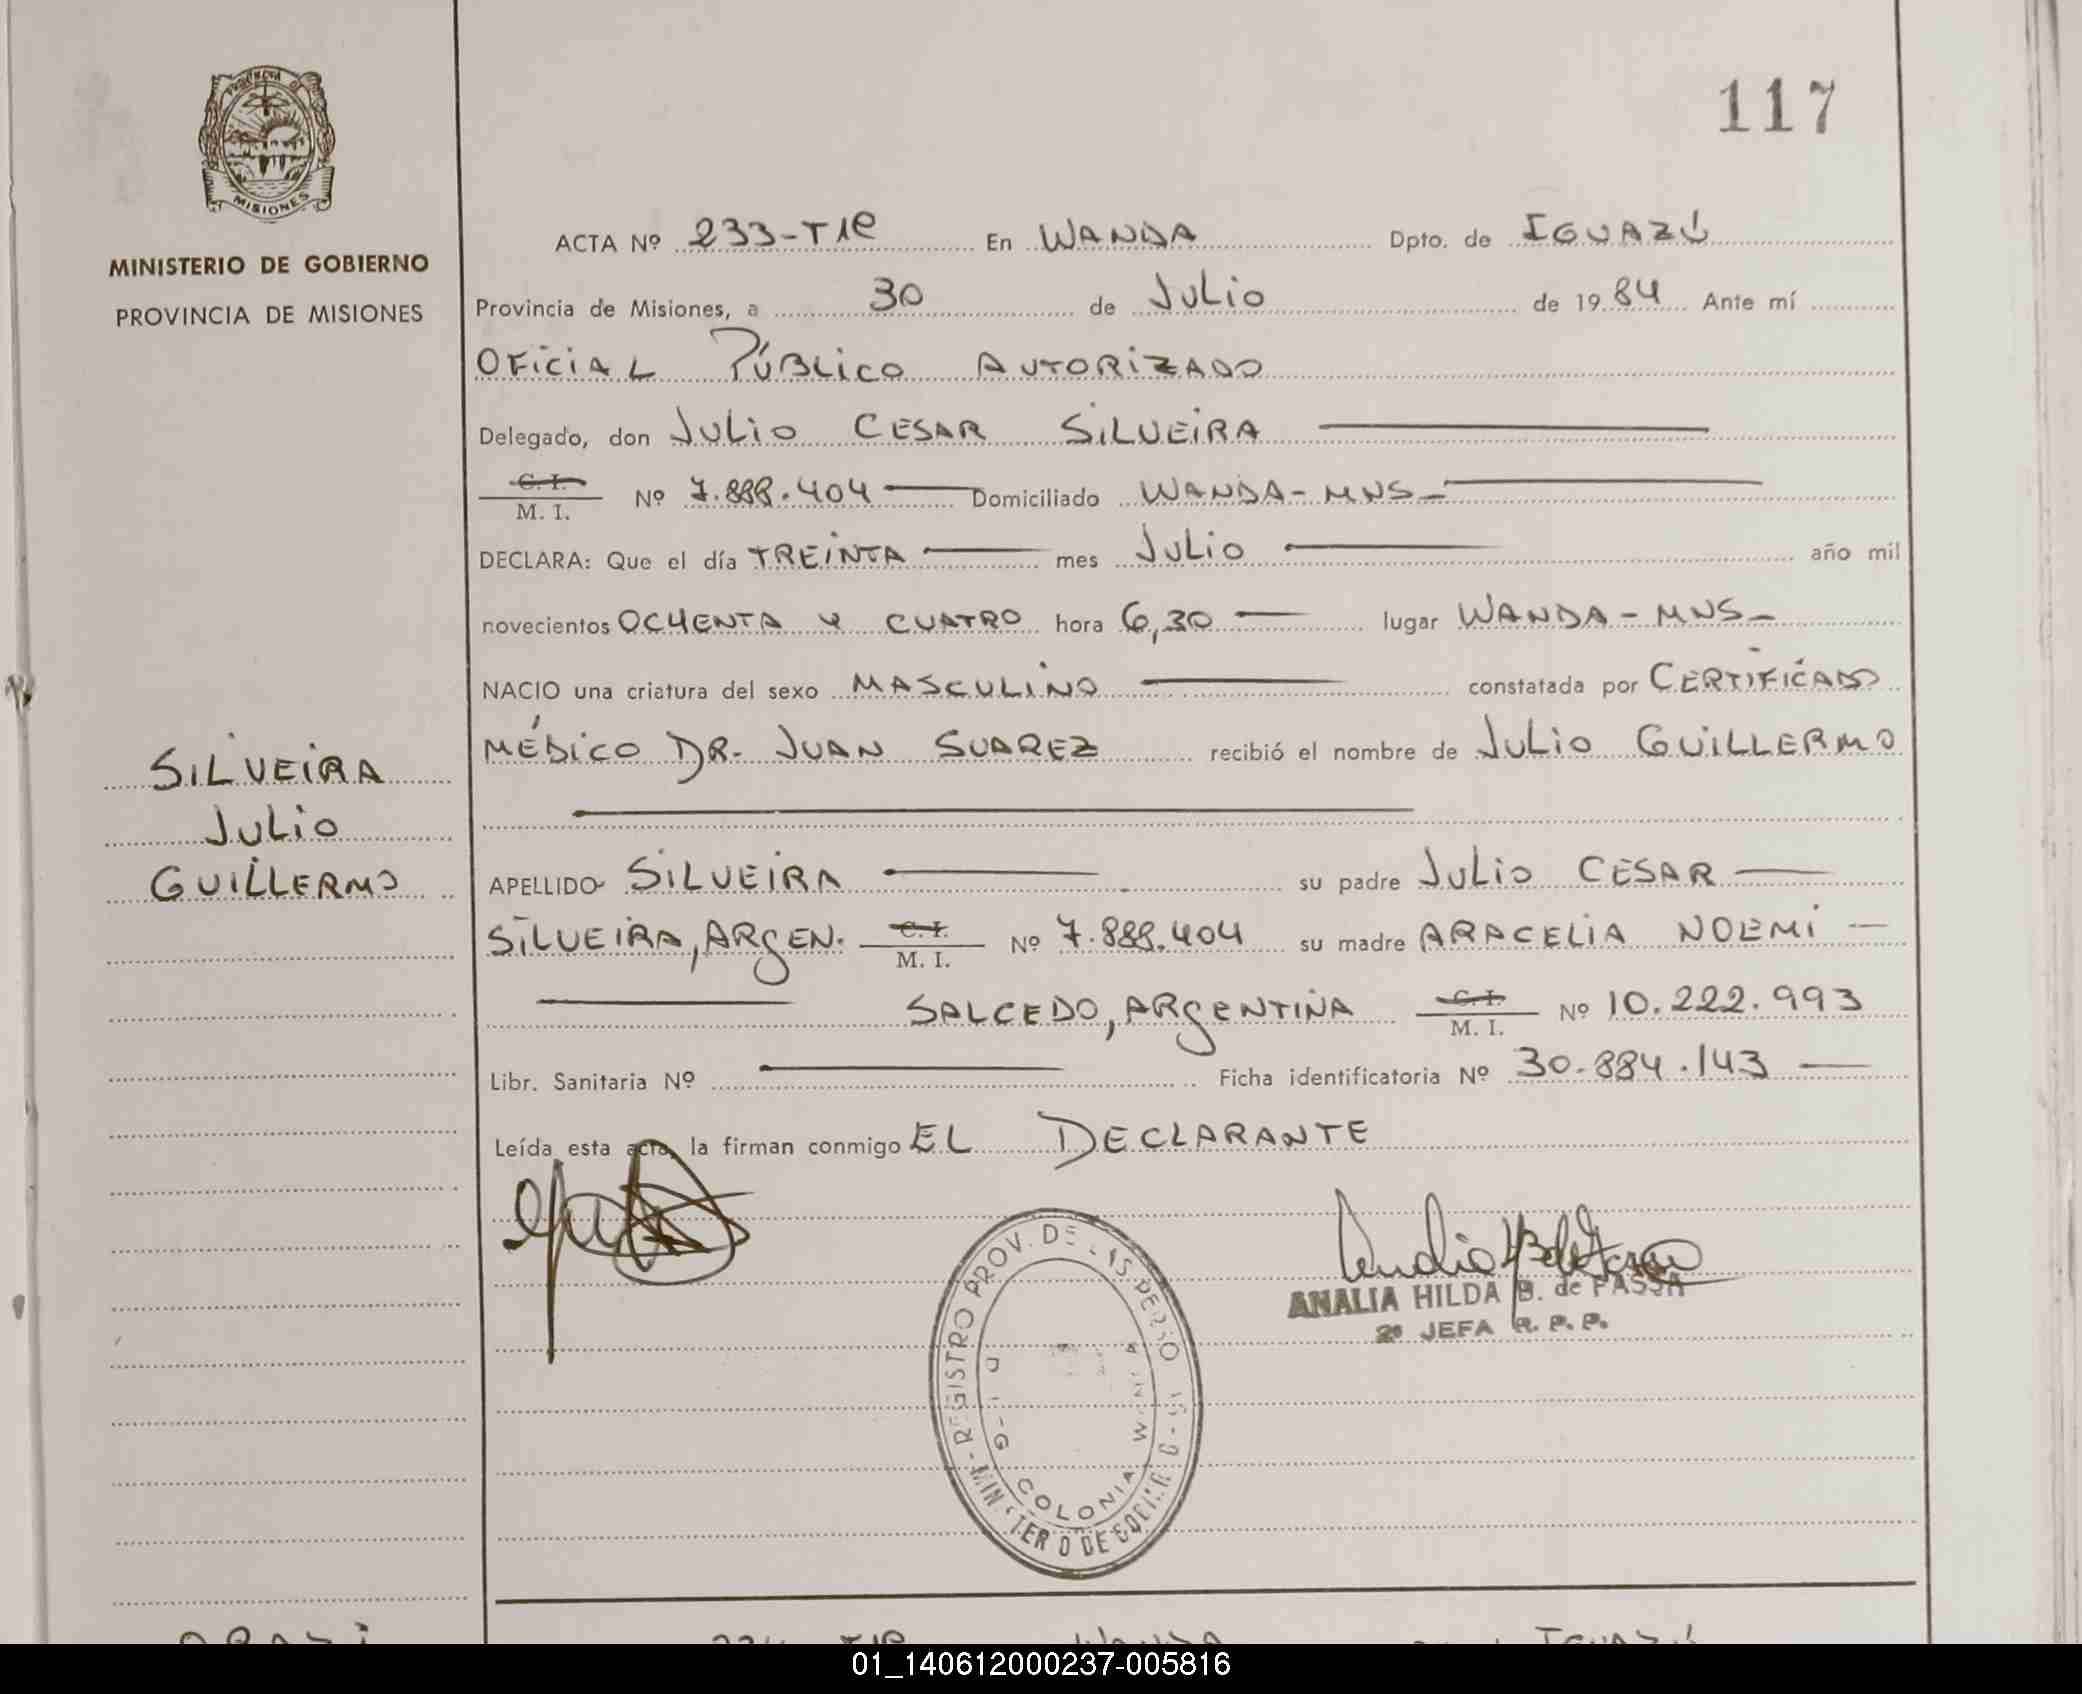 117
PROVINCIA DE
MISIONES
MINISTERIO DE GOBIERNO
PROVINCIA DE MISIONES
ACTA Nº 233-T1º En WANDA Dpto. de IGUAZÚ
Provincia de Misiones, a 30 de JULIO de 1984 Ante mí
OFICIAL PÚBLICO AUTORIZADO
Delegado, don JULIO CESAR SILVEIRA
C. I.
M. I. Nº 7.888.404 Domiciliado WANDA-MNS-
DECLARA: Que el día TREINTA mes JULIO año mil
novecientos OCHENTA Y CUATRO hora 6,30 lugar WANDA-MNS-
NACIO una criatura del sexo MASCULINO constatada por CERTIFICADO
MÉDICO DR. JUAN SUAREZ recibió el nombre de JULIO GUILLERMO
SILVEIRA
JULIO
GUILLERMO
APELLIDO SILVEIRA su padre JULIO CESAR
SILVEIRA, ARGEN. C. I.
M. I. Nº 7.888.404 su madre ARACELIA NOEMI
SALCEDO, ARGENTINA C. I.
M. I. Nº 10.222.993
Libr. Sanitaria Nº Ficha identificatoria Nº 30.884.143
Leída esta acta, la firman conmigo EL DECLARANTE
ANALIA HILDA B. de PASSA
2º JEFA R. P. P.
REGISTRO PROV. DE LAS PERSO
MINISTERIO DE
COLONIA WANDA
WANDA IGUAZÚ
01_140612000237-005816